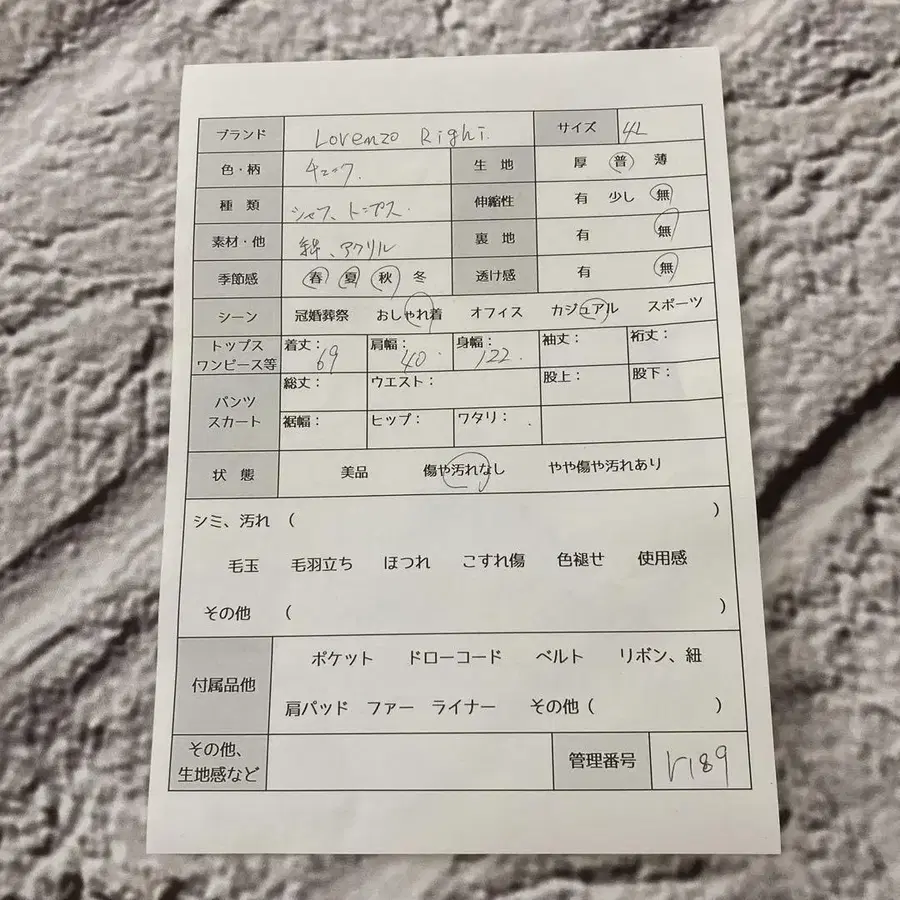 ブランド Lorenzo Righi. サイズ 4L
色・柄 チェック. 生 地 厚 普 薄
種 類 シャツ、トップス. 伸縮性 有 少し 無
素材・他 綿、アクリル 裏 地 有 無
季節感 春 夏 秋 冬 透け感 有 無
シーン 冠婚葬祭 おしゃれ着 オフィス カジュアル スポーツ
トップス ワンピース等 着丈： 69 肩幅： 40. 身幅： 122. 袖丈： 裄丈：
パンツ スカート 総丈： ウエスト： 股上： 股下：
裾幅： ヒップ： ワタリ：
状 態 美品 傷や汚れなし やや傷や汚れあり
シミ、汚れ （ ）
毛玉 毛羽立ち ほつれ こすれ傷 色褪せ 使用感
その他 （ ）
付属品他 ポケット ドローコード ベルト リボン、紐
肩パッド ファー ライナー その他（ ）
その他、
生地感など 管理番号 r189